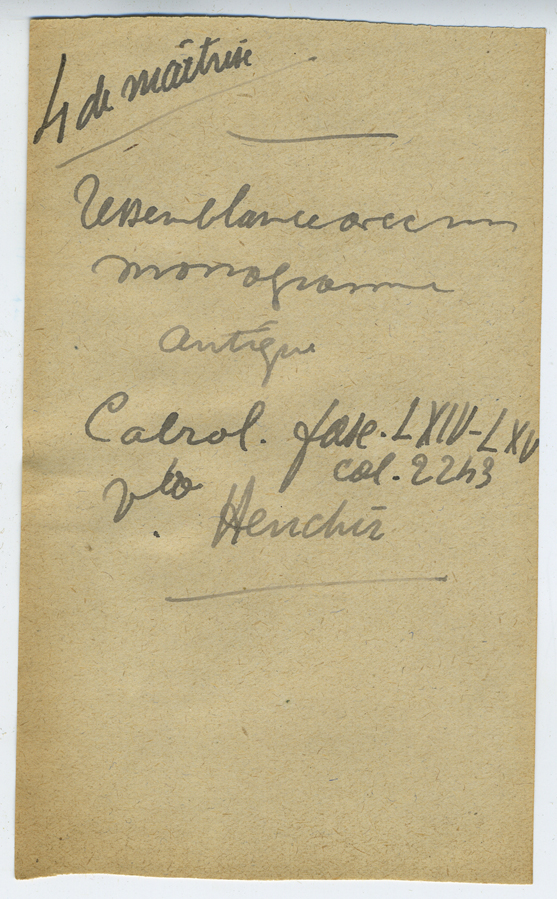 4 de maîtrise
Ressemblance avec un
monogramme
antique
Cabrol. fasc. LXIV-LXV
col. 2243
vbo
Henchir